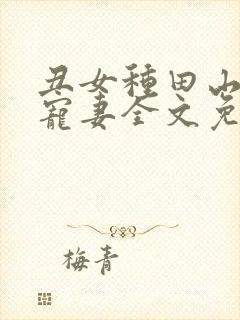 丑女種田山
寵妻全文免
梅青